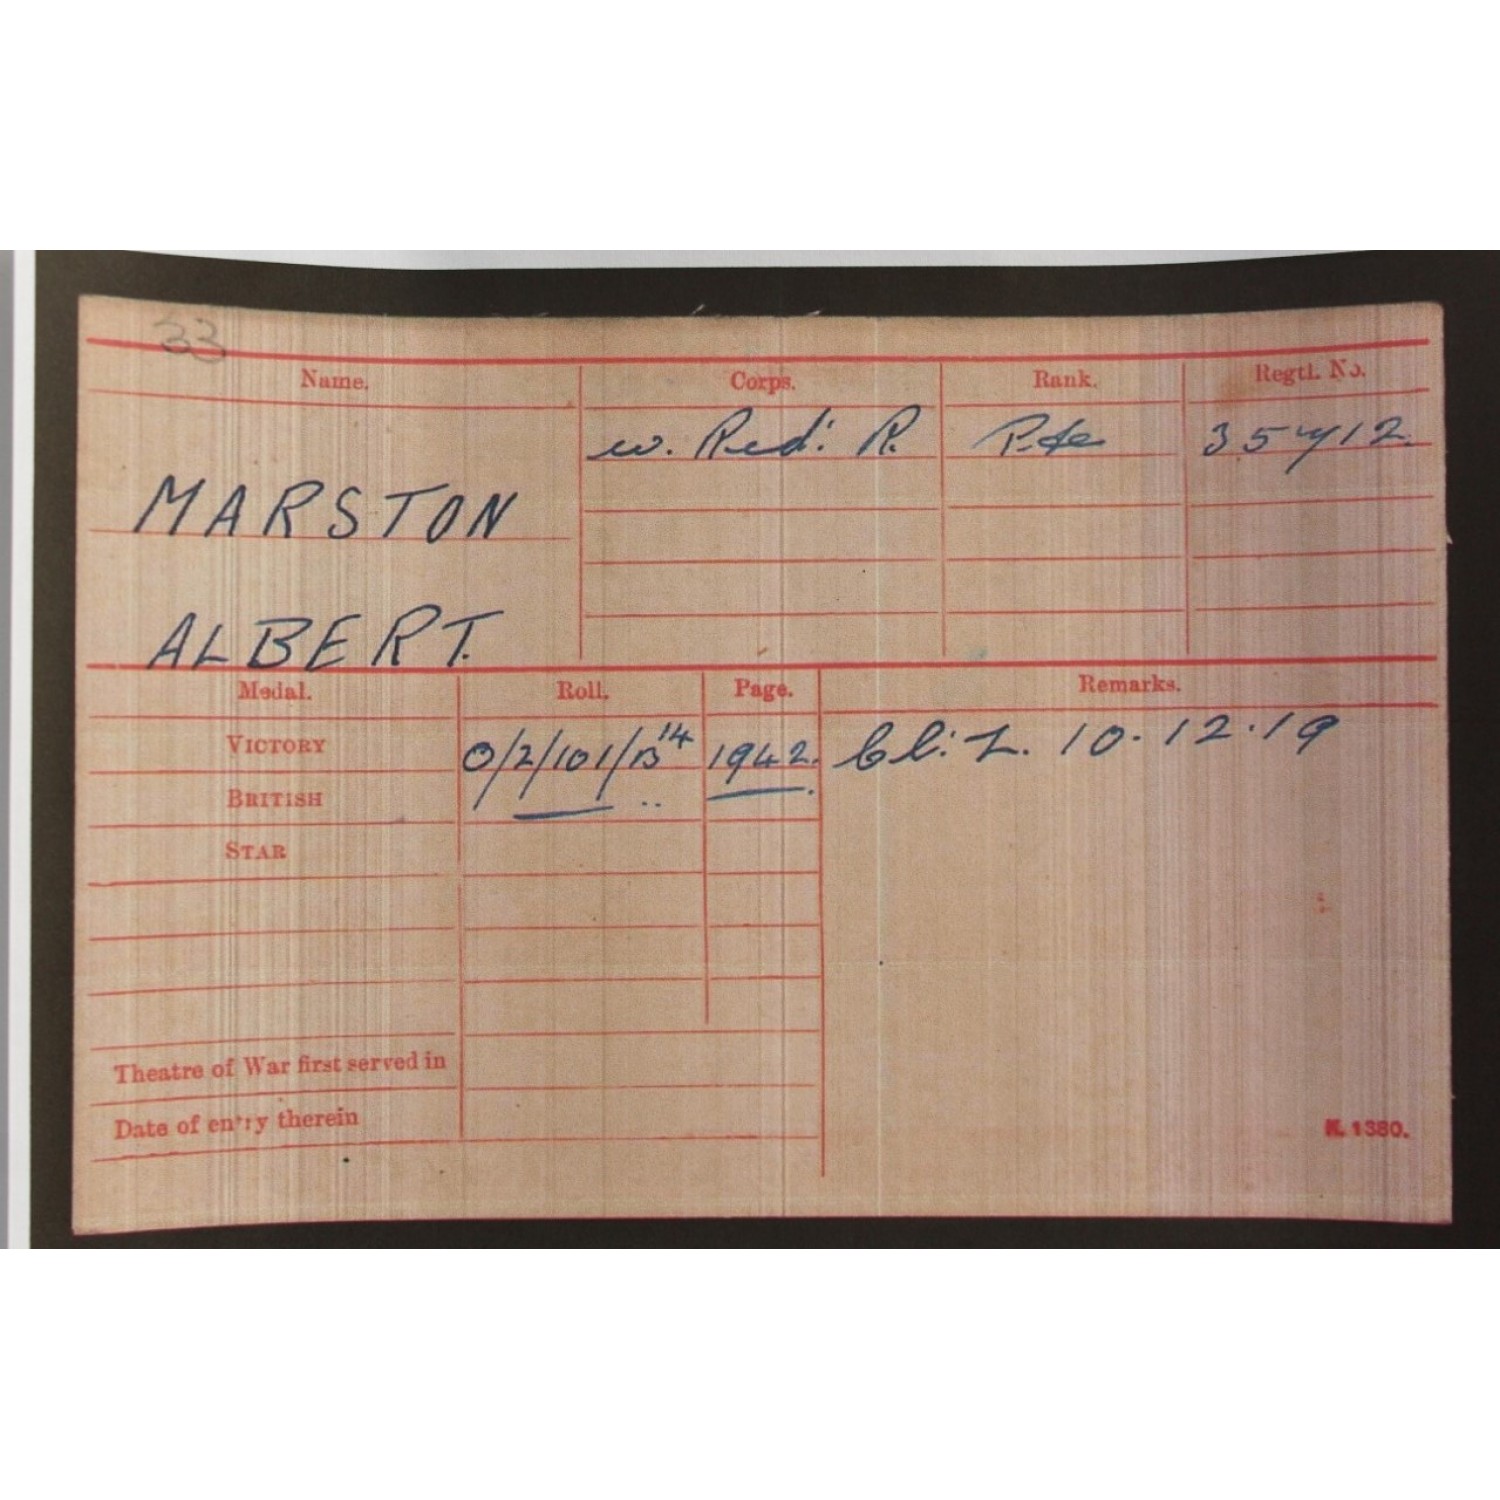 33
Name. Corps. Rank. Regtl. No.
W. Rid: R. Pte 35712.
MARSTON
ALBERT.
Medal. Roll. Page. Remarks.
VICTORY O/2/101/B14 1942. Cl: Z. 10.12.19
BRITISH
STAR
Theatre of War first served in
Date of entry therein
K. 1380.